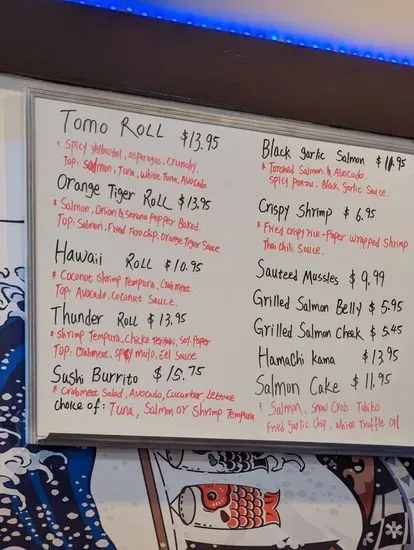 Tomo Roll $13.95
* Spicy Yellowtail, asparagus, Crunchy,
Top: Salmon, Tuna, White Tuna, Avocado
Orange Tiger Roll $13.95
* Salmon, Onion & Pepper Baked.
Top: Salmon, Fried Taro chip, Orange Tiger Sauce
Hawaii Roll $10.95
* Coconut Shrimp Tempura, Crabmeat
Top: Avocado, Coconut Sauce.
Thunder Roll $13.95
* Shrimp Tempura, Soy-Paper
Top: Crabmeat, Spicy Mayo, Eel Sauce
Sushi Burrito $15.75
* Crabmeat Salad, Avocado, Cucumber, Lettuce
Choice of: Tuna, Salmon or Shrimp Tempura
Black garlic Salmon $11.95
* Torched Salmon & Avocado
Spicy Ponzu, Black Garlic Sauce.
Crispy Shrimp $6.95
* Fried crispy rice-Paper wrapped Shrimp
Thai Chili Sauce.
Sauteed Mussles $9.99
Grilled Salmon Belly $5.95
Grilled Salmon Cheek $5.45
Hamachi kama $13.95
Salmon Cake $11.95
* Salmon, Snow Crab Tobiko
Fried Garlic Chip, White Truffle Oil